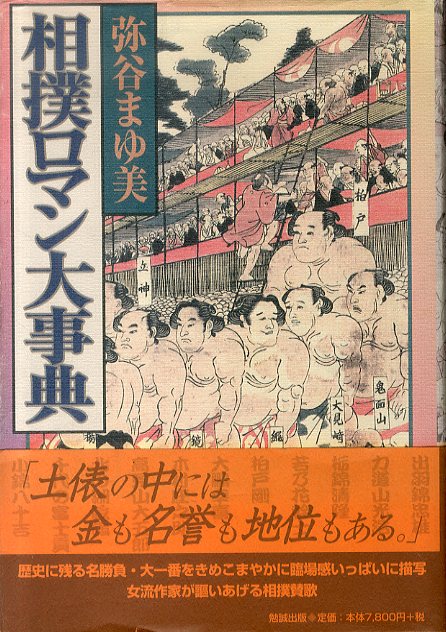 相撲ロマン大事典
弥谷まゆ美
柏戸
立神
鬼面山
鏡
「土俵の中には
金も名誉も地位もある。」
歴史に残る名勝負・大一番をきめこまやかに臨場感いっぱいに描写
女流作家が謳いあげる相撲賛歌
勉誠出版◆定価：本体7,800円+税